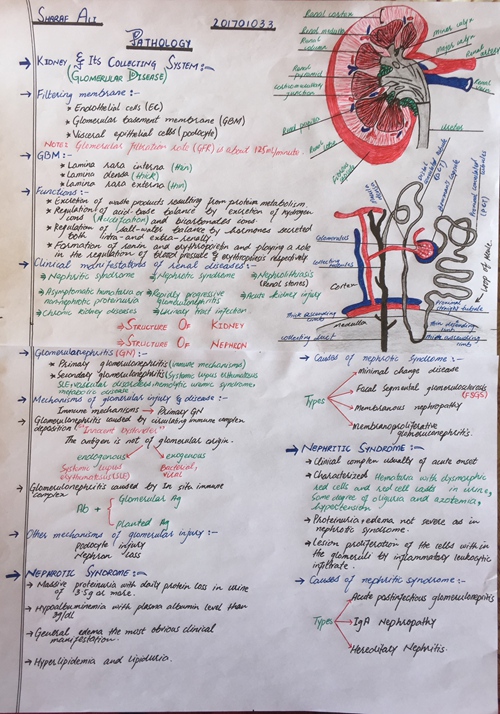 SHARAF ALI
201701033
PATHOLOGY
KIDNEY & Its COLLECTING SYSTEM:-
(GLOMERULAR DISEASE)
Filtering membrane:-
* Endothelial cells (EC)
* Glomerular basement membrane (GBM)
* Visceral epithelial cells (podocyte)
NOTE: Glomerular filtration rate (GFR) is about 125ml/minute.
GBM:-
* Lamina rara interna (thin)
* Lamina densa (thick)
* Lamina rara externa (thin)
Functions:-
* Excretion of waste products resulting from protein metabolism.
* Regulation of acid-base balance by excretion of hydrogen
(Acidification) and bicarbonate ions.
* Regulation of salt-water balance by hormones secreted
both intra- and extra-renally
* Formation of renin and erythropoietin and playing a role
in the regulation of blood pressure & erythropoiesis respectively
Clinical manifestations of renal diseases:-
Nephritic syndrome
Nephrotic syndrome
Nephrolithiasis
(Renal stones)
Asymptomatic hematuria or
nonnephrotic proteinuria
Rapidly progressive
glomerulonephritis
Acute kidney injury
Chronic kidney diseases
Urinary tract infection
STRUCTURE OF KIDNEY
STRUCTURE OF NEPHRON
Glomerulonephritis (GN):-
* Primary glomerulonephritis (immune mechanisms)
* Secondary glomerulonephritis (Systemic lupus erythematosus
SLE, vascular disorders, hemolytic uremic syndrome,
metabolic disease
Mechanisms of glomerular injury & disease:-
Immune mechanisms → Primary GN
Glomerulonephritis caused by circulating immune complex
deposition "Innocent bystander"
The antigen is not of glomerular origin.
endogenous
exogenous
Systemic lupus
erythematosus (SLE)
Bacterial,
viral
Glomerulonephritis caused by In situ immune
complex
Glomerular Ag
Ab +
Planted Ag
Other mechanisms of glomerular injury:-
Podocyte injury
Nephron loss
NEPHROTIC SYNDROME:-
Massive proteinuria with daily protein loss in urine
of 3.5g or more.
Hypoalbuminemia with plasma albumin level than
3g/dl
General edema the most obvious clinical
manifestation.
Hyperlipidemia and lipiduria.
Renal cortex
Renal medulla
Renal
column
Renal
pyramid
Corticomedullary
junction
Renal papilla
minor calyx
major calyx
Renal artery
Renal
vein
Ureter
Glomerulus
collecting
tubules
Cortex
Thick ascending
limb
medullar
collecting duct
Distal convoluted tubule
(DCT)
Bowman's capsule
Proximal convoluted
tubule
Loop of Henle
Proximal
straight tubule
thin descending
limb
thin ascending
limb
Causes of nephrotic syndrome:-
Minimal change disease
Focal Segmental glomerulosclerosis
(FSGS)
Types
Membranous nephropathy
Membranoproliferative
glomerulonephritis.
NEPHRITIC SYNDROME:-
Clinical complex usually of acute onset
Characterized Hematuria with dysmorphic
red cells and red cell casts in urine,
Some degree of oliguria and azotemia,
hypertension
Proteinuria & edema not severe as in
nephrotic syndrome.
Lesion proliferation of the cells within
the glomeruli by inflammatory leukocytic
infiltrate.
Causes of nephritic syndrome:-
Acute postinfectious glomerulonephritis
Types
IgA Nephropathy
Hereditary Nephritis.